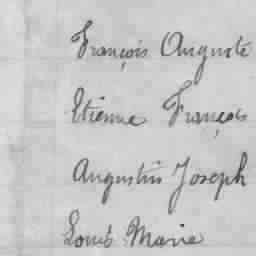 François Auguste
Etienne François
Augustin Joseph
Louis Marie